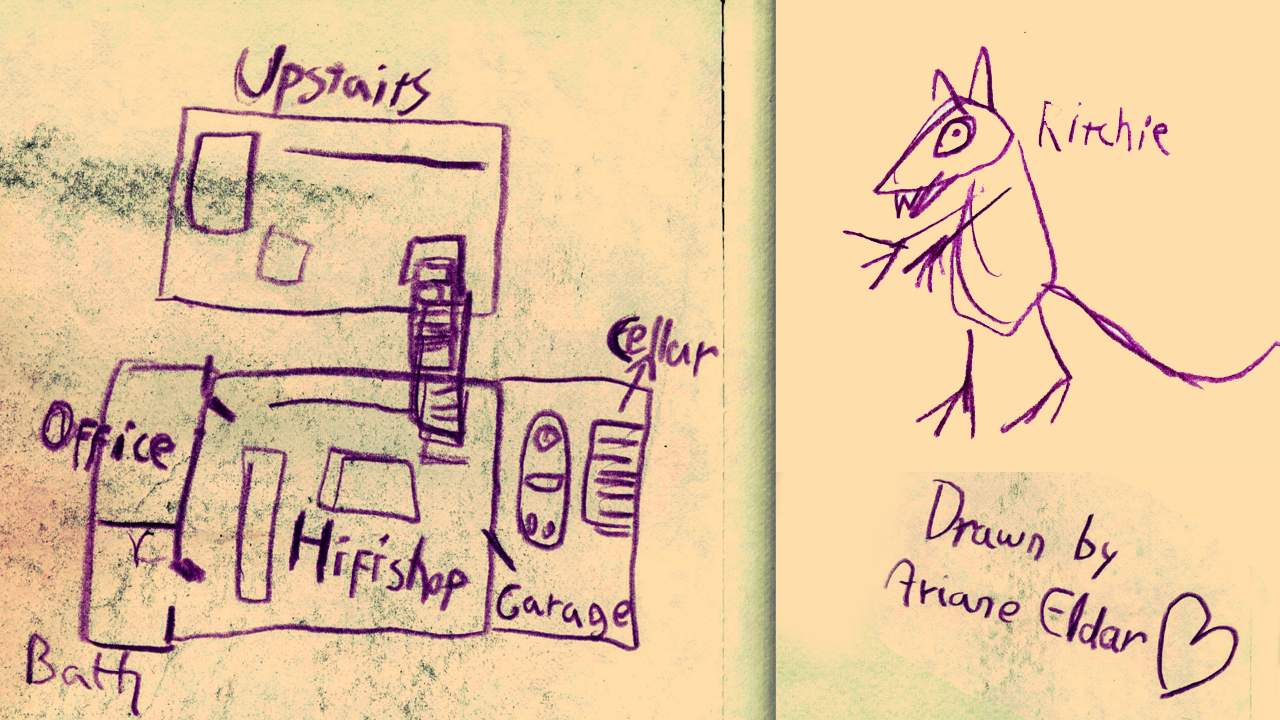 Upstairs
Cellar
Office
Hifishop
Garage
Bath
Ritchie
Drawn by
Ariane Eldar